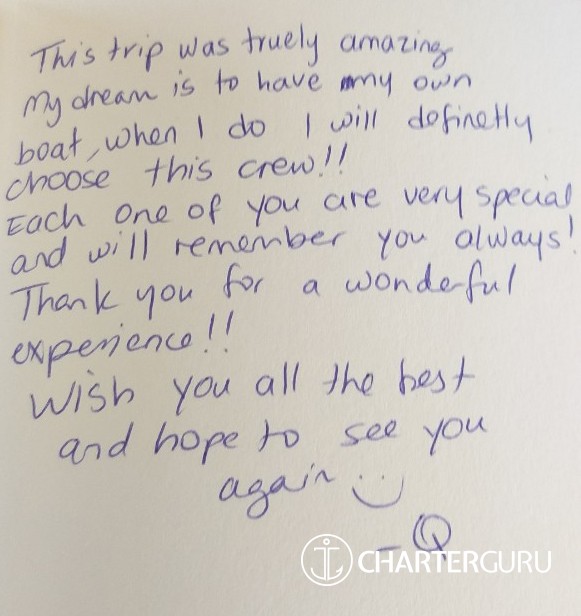 This trip was truely amazing
My dream is to have my own
boat, when I do I will definetly
choose this crew!!
Each one of you are very special
and will remember you always!
Thank you for a wonderful
experience!!
Wish you all the best
and hope to see you
again :)
– Q
CHARTERGURU